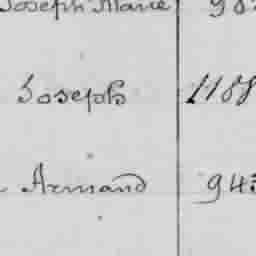 Joseph Marie 98
Joseph 1188
Armand 943